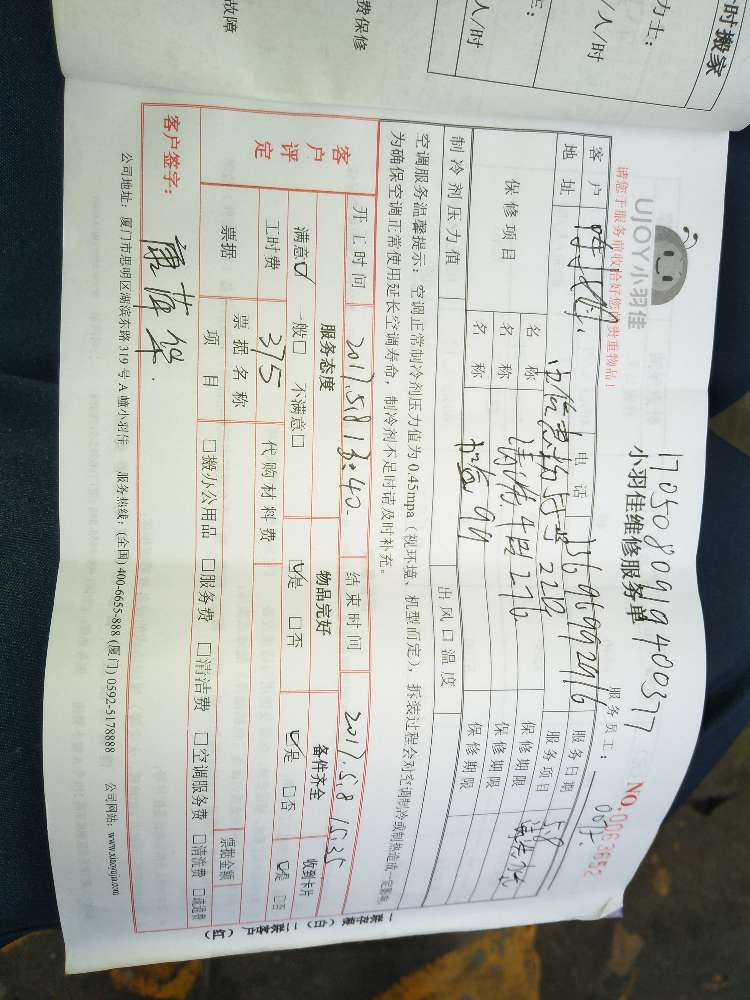 时搬家
力士:
/人/时
E:
人/时
费保修
故障
UJOY小羽佳
1705080919400377
小羽佳维修服务单
NO.0063652
请您于服务前收恰好您的贵重物品!
服务员工:
客户
电话
13696992916
服务日期
5.8
地址
服务项目
保修项目
名称
保修期限
名称
保修期限
名称
保修期限
制冷剂压力值
出风口温度
空调服务温馨提示: 空调正常制冷剂压力值为0.45mpa (视环境、机型而定), 拆装过程会对空调制冷或制热造成一定影响,
为确保空调正常使用延长空调寿命, 制冷剂不足时请及时补充。
客户评定
开工时间
2017.5.8 13:40
结束时间
2017.5.8 15:35
服务态度
物品完好
备件齐全
收到卡片
满意☑ 一般□ 不满意□
☑是 □否
☑是 □否
☑是 □否
工时费
375
代购材料费
票据
票据名称
票据金额
项目
□搬办公用品 □服务费 □清洁费 □空调服务费 □清洗费 □疏通费
客户签字:
公司地址: 厦门市思明区湖滨东路319号A幢小羽佳 服务热线: (全国) 400-6655-888 (厦门) 0592-5178888 公司网站: www.xiaoyujia.com
一联存根 (白) 二联客户 (红)